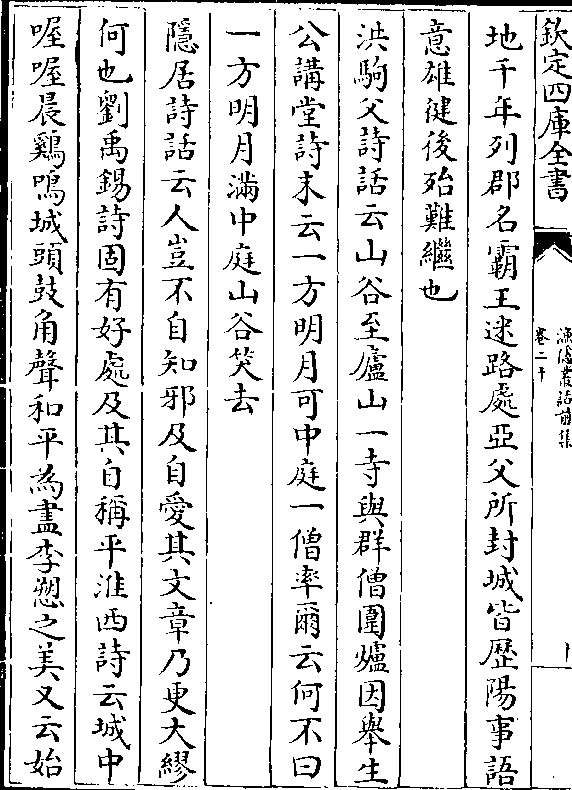 欽定四庫全書
漁隱叢話前集
卷二十
地千年列郡名霸王迷路處亞父所封城皆歷陽事語
意雄健後殆難繼也
洪駒父詩話云山谷至廬山一寺與群僧圍爐因舉生
公講堂詩末云一方明月可中庭一僧率爾云何不曰
一方明月滿中庭山谷笑去
隱居詩話云人豈不自知邪及自愛其文章乃更大繆
何也劉禹錫詩固有好處及其自稱平淮西詩云城中
喔喔晨鷄鳴城頭鼓角聲和平為盡李愬之美又云始